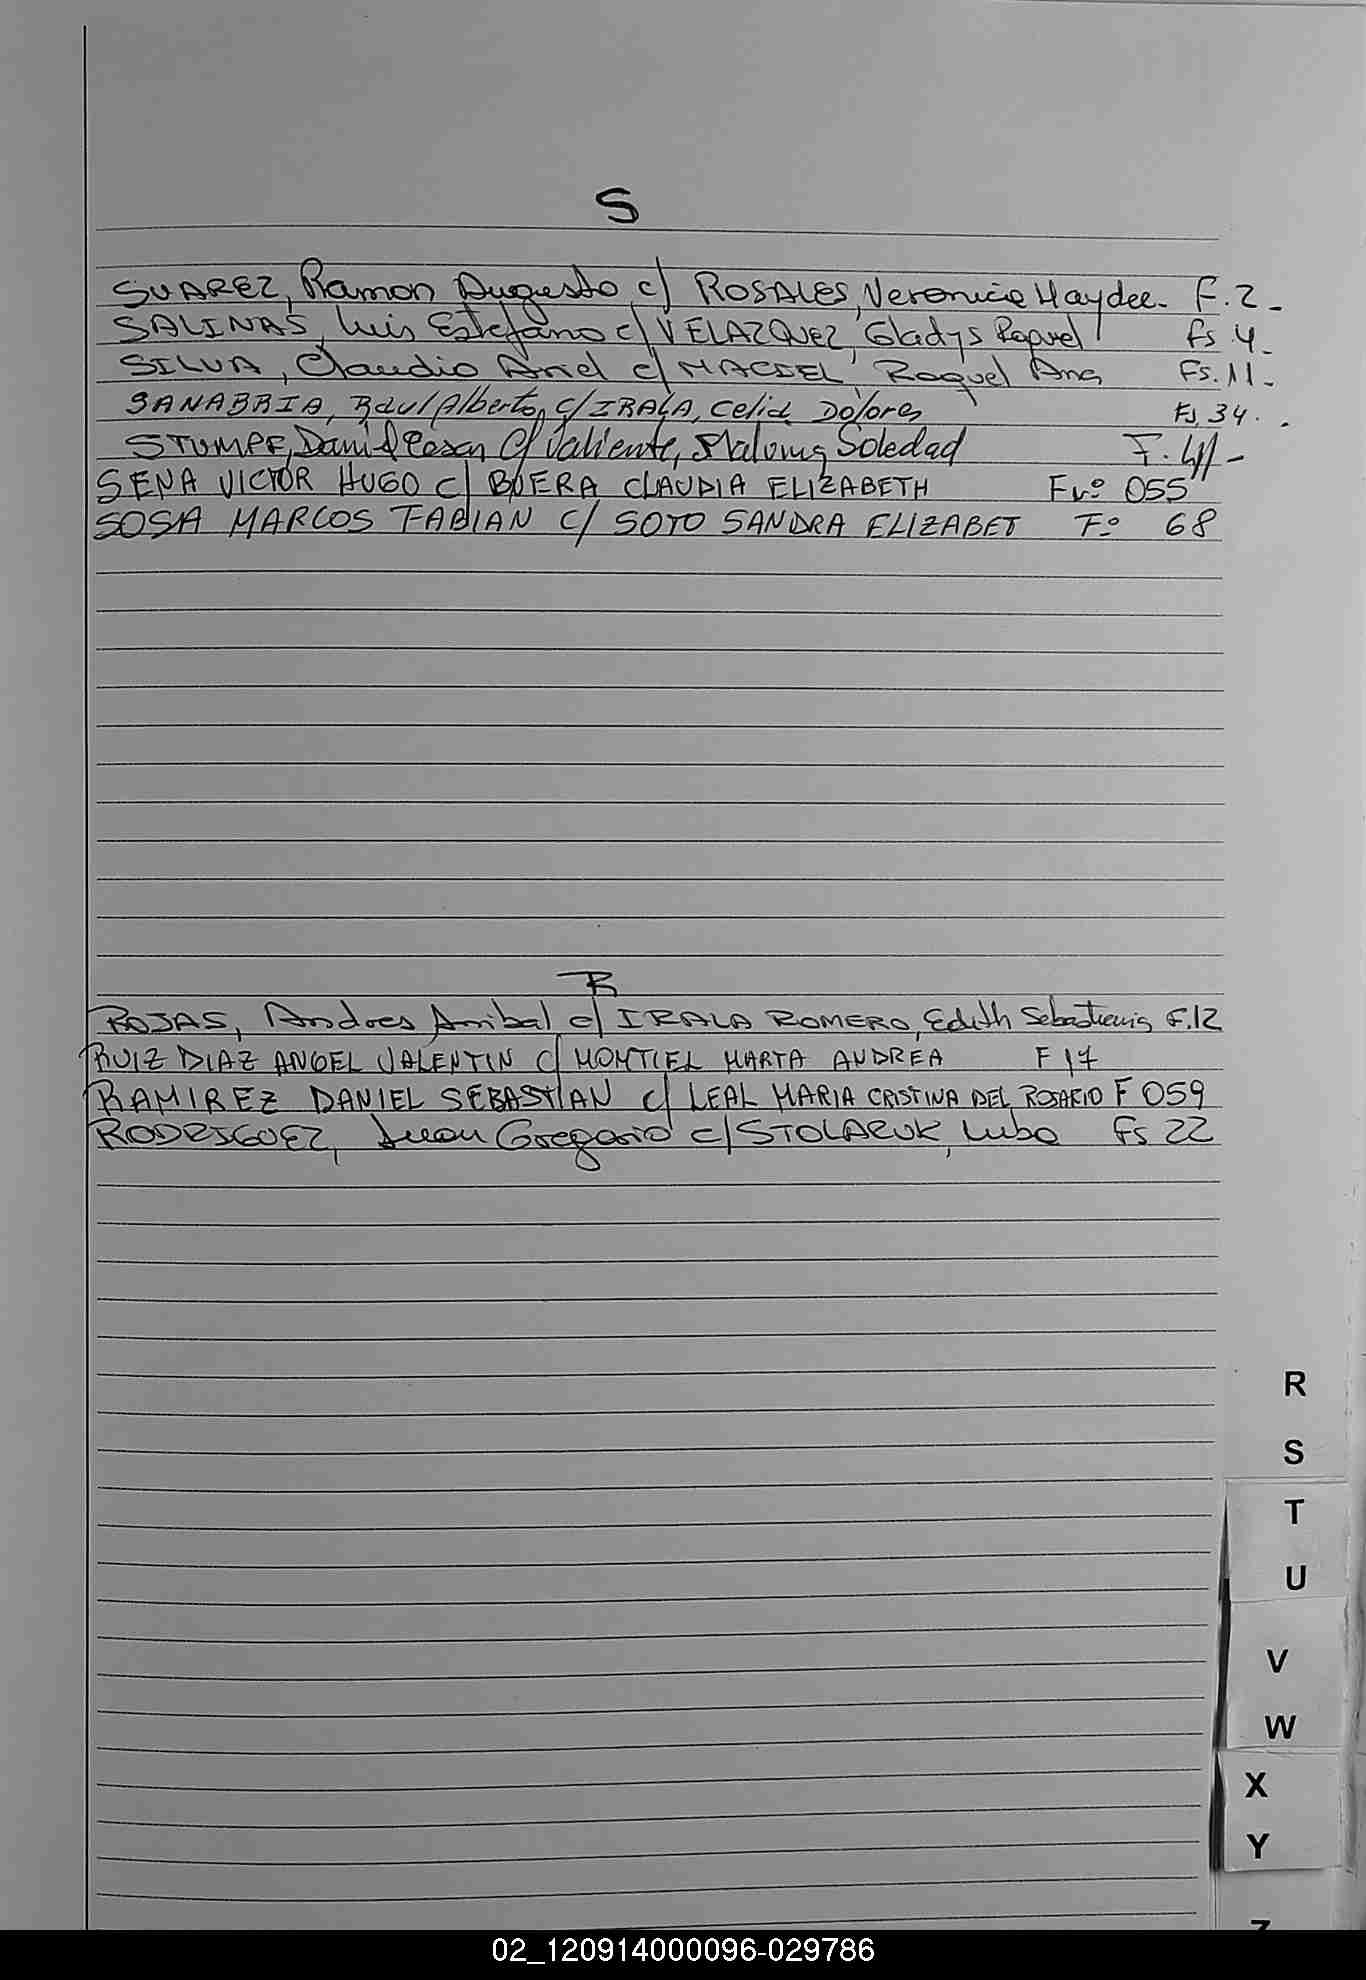 S
SUAREZ, Ramon Augusto c/ ROSALES, Veronica Haydee - F. 2 -
SALINAS, Luis Estefano c/ VELAZQUEZ, Gladys Raquel Fs 4 -
SILVA, Claudio Ariel c/ MACIEL, Raquel Ana Fs. 11 -
SANABRIA, Raul Alberto, c/ IRALA, Celia Dolores Fs 34 .
STUMPF, Daniel Cesar C/ Valiente, Soledad F. 41 -
SENA VICTOR HUGO c/ BOERA CLAUDIA ELIZABETH Fvº 055
SOSA MARCOS FABIAN c/ SOTO SANDRA ELIZABET Fº 68
R
ROJAS, Andres Anibal c/ IRALA ROMERO, Edith Sebastiana F. 12
RUIZ DIAZ ANGEL VALENTIN c/ MONTIEL MARTA ANDREA F 17
RAMIREZ DANIEL SEBASTIAN c/ LEAL MARIA CRISTINA DEL ROSARIO F 059
RODRIGUEZ, Juan Gregorio c/ STOLARUK, Luba Fs 22
R
S
T
U
V
W
X
Y
Z
02_120914000096-029786